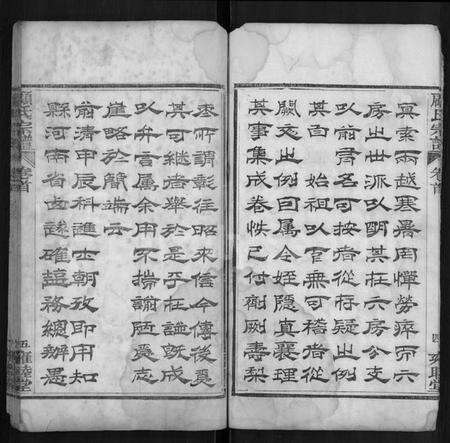 顧氏宗譜 卷首 四 雍睦堂
冥索兩越寒暑罔憚勞瘁而六
房之世派以明其在六房分支
以前君名可按者從存疑之例
其由 始祖以官無可稽者從
闕文之例回屬令姪隱真襄理
其事集成卷帙已付剞劂壽梨
棗所謂彰往昭來信今傳後奚
其可繼者舉於是乎在譜既成
以弁言屬余用不揣謭陋爰志
崖略於簡端云
前清甲辰科進士朝考即用知
縣河南省咨議確務總辦愚
顧氏宗譜 卷首 五 雍睦堂